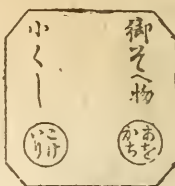 御そへ物
あをど
かち
小くし
こけ
いり